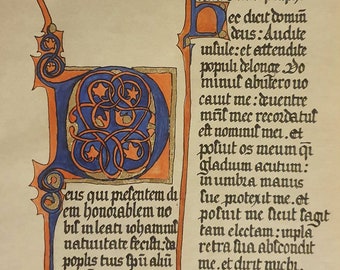 Deus qui presentem di
em honorabilem no
bis in beati iohannis
natiuitate fecisti: da
poplis tuis spu aliu
Hec dicit domin
deus: Audite
insule: et attendite
populi delonge. Do
minus abutero uo
cauit me: deuentre
mris mee recordatus
est nominis mei. et
posuit os meum q
gladium acutum:
in umbra manus
sue protexit me. et
posuit me sicut sagit
tam electam: in pha
retra sua abscondit
me. et dixit michi